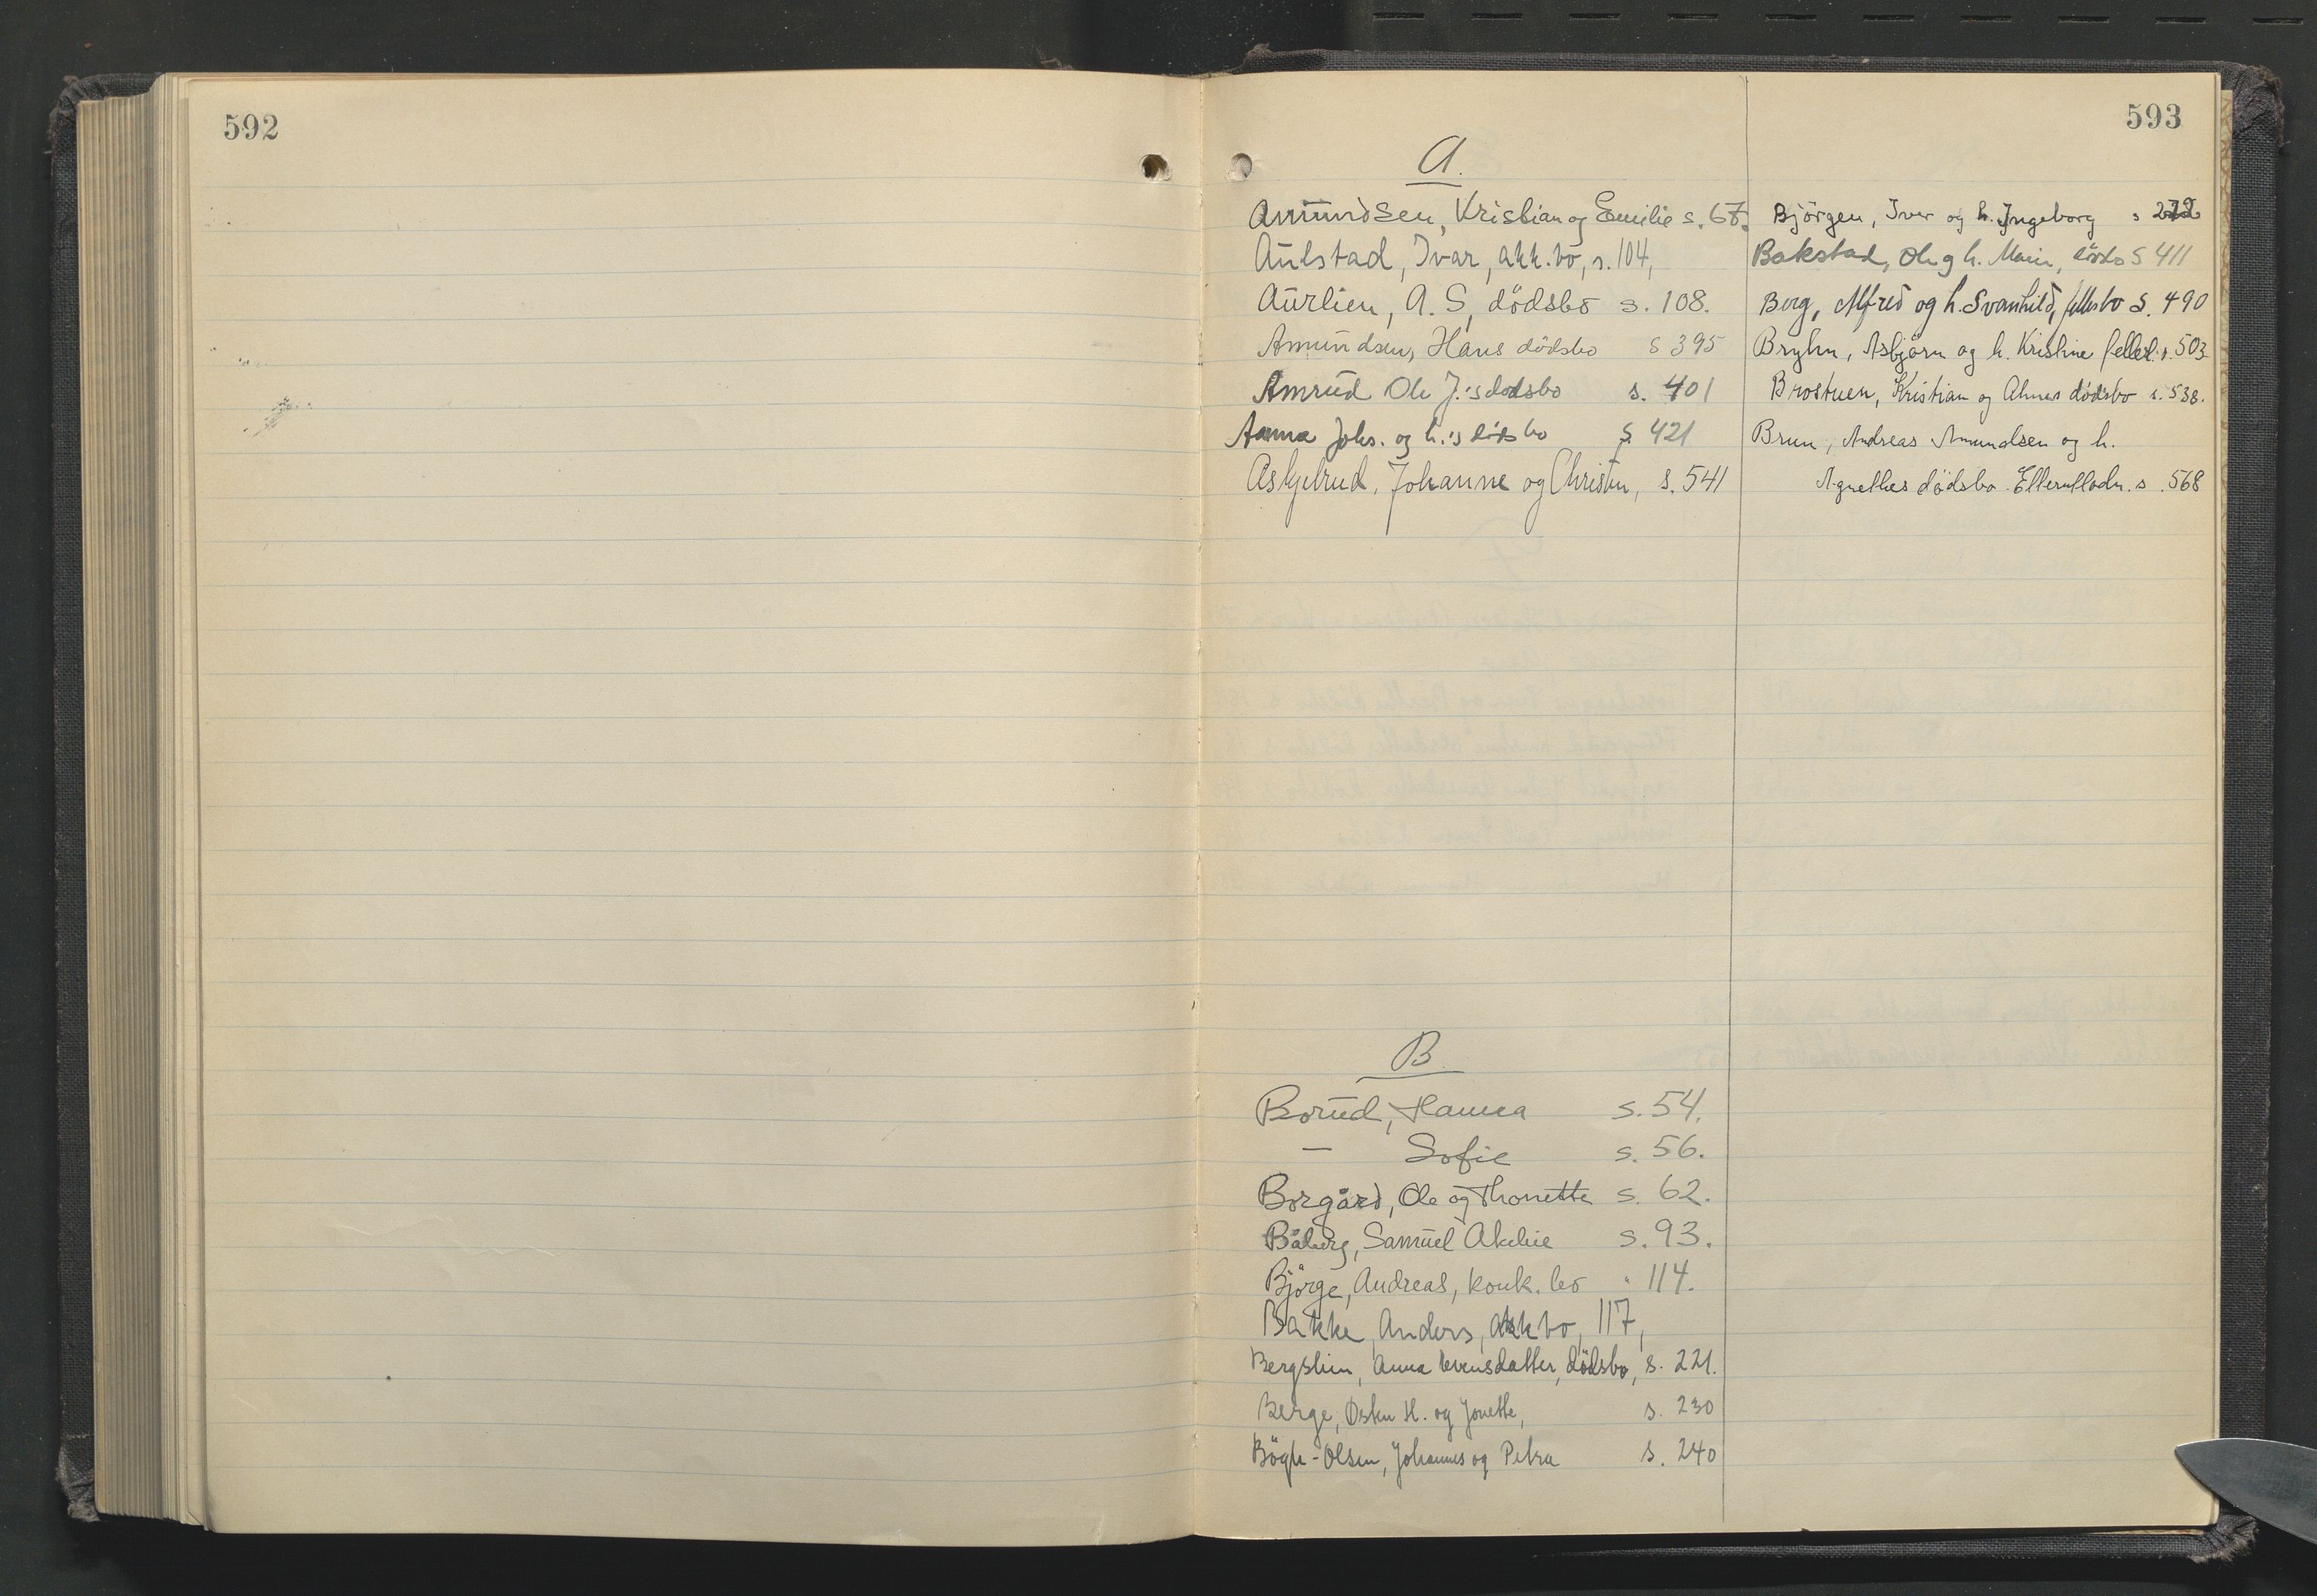 592
593
A.
Amundsen, Kristian og Emilie s. 67.
Aulstad, Ivar, akk.bo, s. 104,
Aurlien, A. S, dödsbo s. 108.
Amundsen, Hans dödsbo s 395
Amrud Ole J.'s dödsbo s. 401
Aanna Johs. og h.'s döds bo s. 421
Askjelrud, Johanne og Christen, s. 541
B.
Borud, Hanna s. 54.
— Sofie s. 56.
Borgård, Ole og Thonette s. 62.
Båberg, Samuel s. 93.
Bjørge, Andreas, konk. bo " 114.
Bakke, Anders, akk bo, 117,
Anna Evensdatter, dödsbo, s. 221.
Berge, Østen H. og Jonette, s. 230
Bögh-Olsen, Johannes og Petra s. 240
Björgen, Iver og h. Ingeborg s 272
Bakstad, Ole og h. Marie, dödsbo S 411
Berg, Alfred og h. Svanhild, fellesbo S. 490
Bryhn, Asbjörn og h. Kristine s. 503
Brostuen, Kristian og Almas dödsbo s. 538.
Brun, Andreas Amundsen og h.
Agnethes dödsbo s. 568